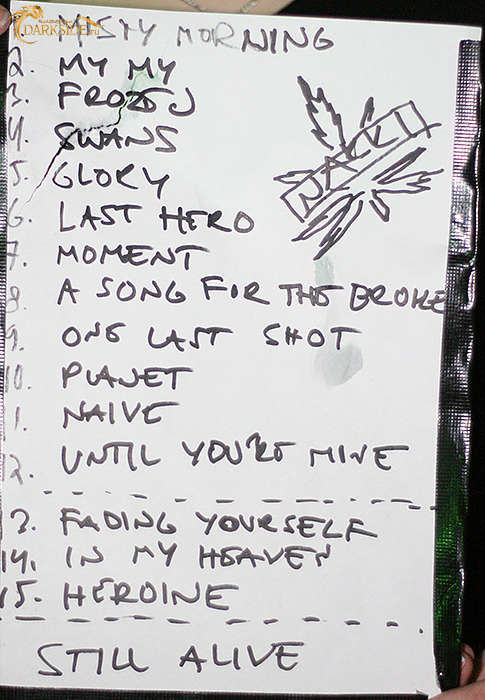 DARKSIDE.ru
MISTY MORNING
2. MY MY
3. FROZEN
4. SWANS
5. GLORY
6. LAST HERO
7. MOMENT
8. A SONG FOR THE BROKE
9. ONE LAST SHOT
10. PLANET
1. NAIVE
2. UNTIL YOU'RE MINE
3. FADING YOURSELF
14. IN MY HEAVEN
15. HEROINE
STILL ALIVE